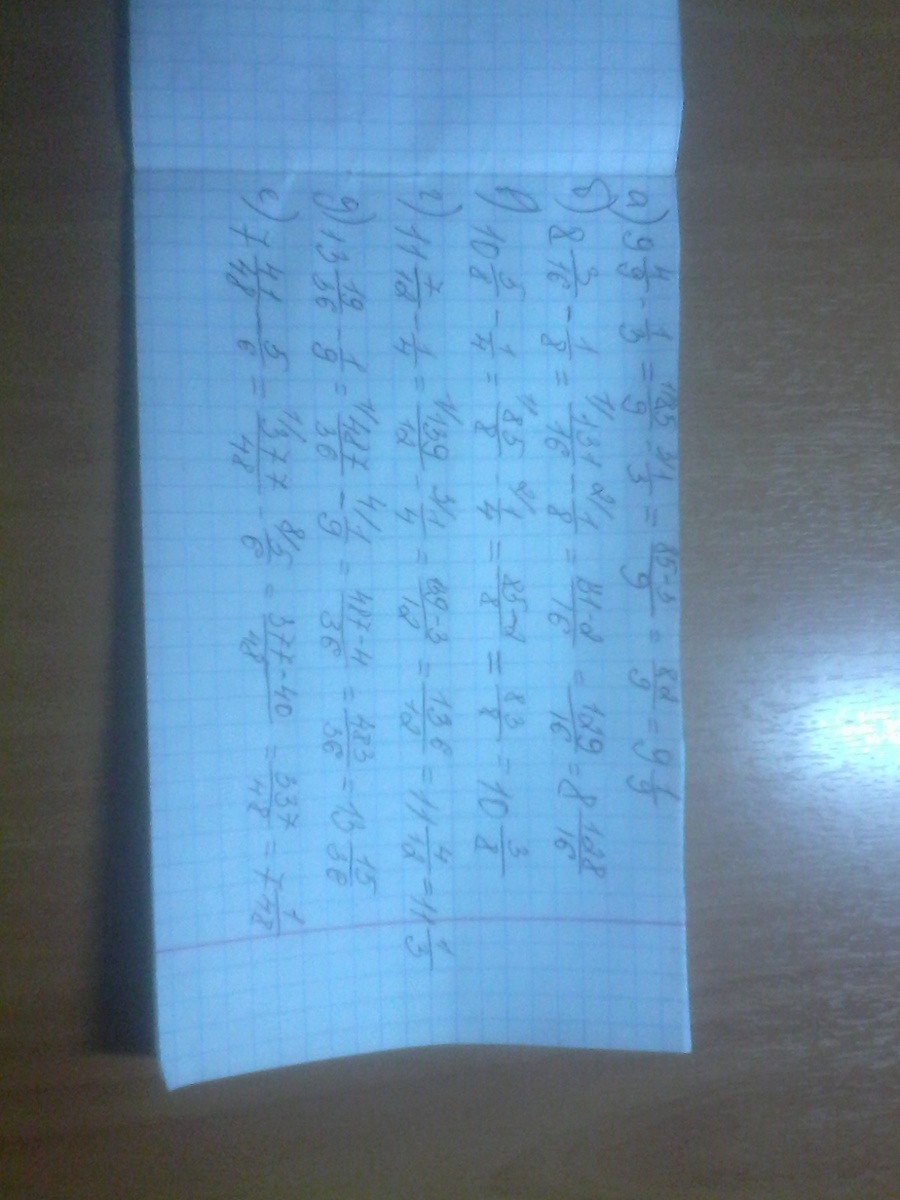 а) 9 4/9 - 1/3 = 85/9 - 1/3 = 85-3/9 = 82/9 = 9 1/9
б) 8 3/16 - 1/8 = 131/16 - 1/8 = = 129/16 = 8
в) 10 5/8 - 1/4 = 85/8 - 1/4 = 85-2/8 = 83/8 = 10 3/8
г) 11 7/12 - 1/4 = 139/12 - 1/4 = = 136/12 = 11 4/12 = 11 1/3
д) 13 19/36 - 1/9 = 487/36 - 1/9 = 487-4/36 = 483/36 = 13 15/36
е) 7 41/48 - 5/6 = 377/48 - 5/6 = 377-40/48 = 337/48 = 7 1/48